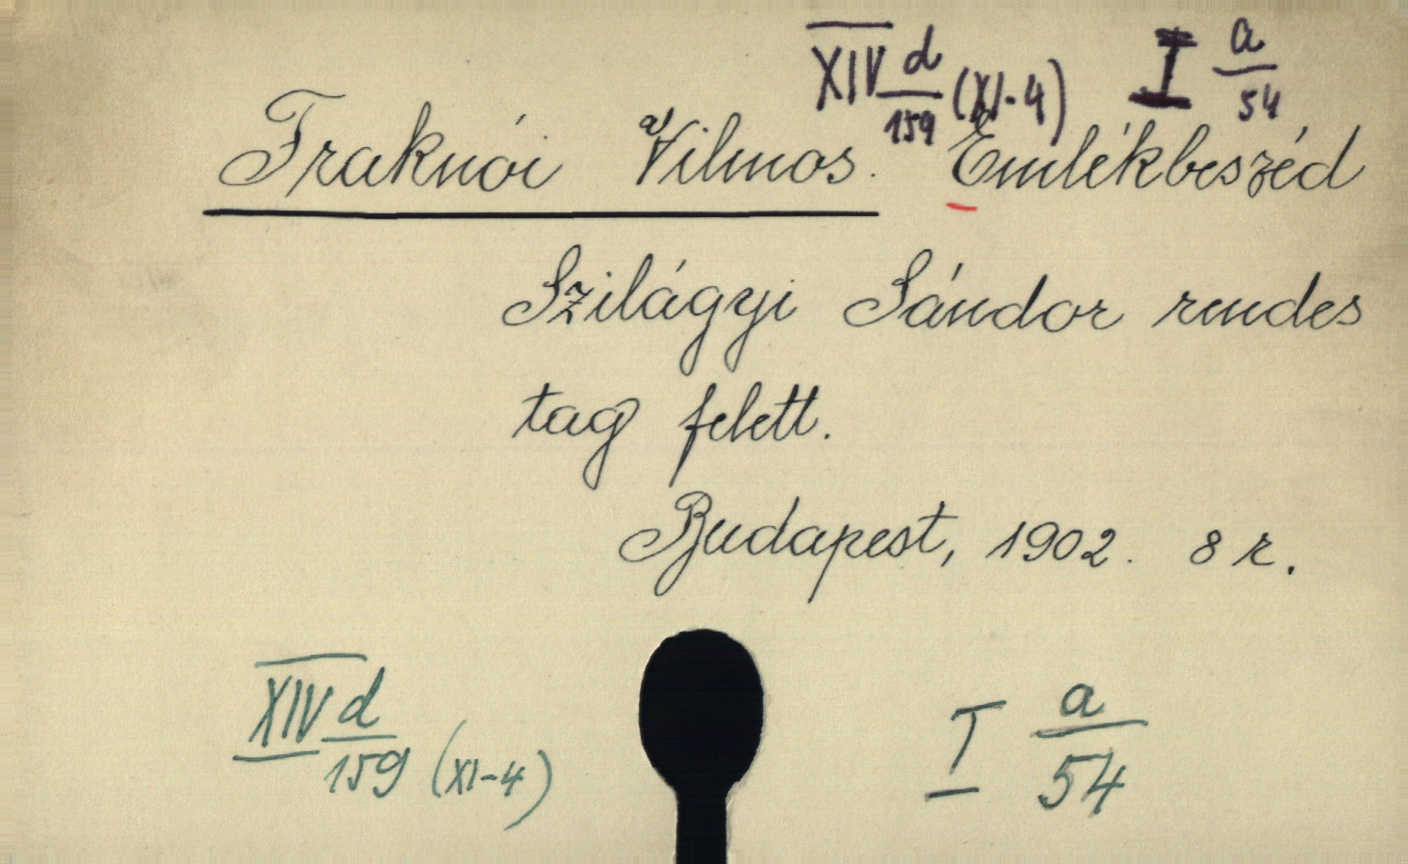 XIV d/159 (XI-4) I a/54
Fraknói Vilmos. Emlékbeszéd
Szilágyi Sándor rendes
tag felett.
Budapest, 1902. 8 r.
XIV d/159 (XI-4) I a/54